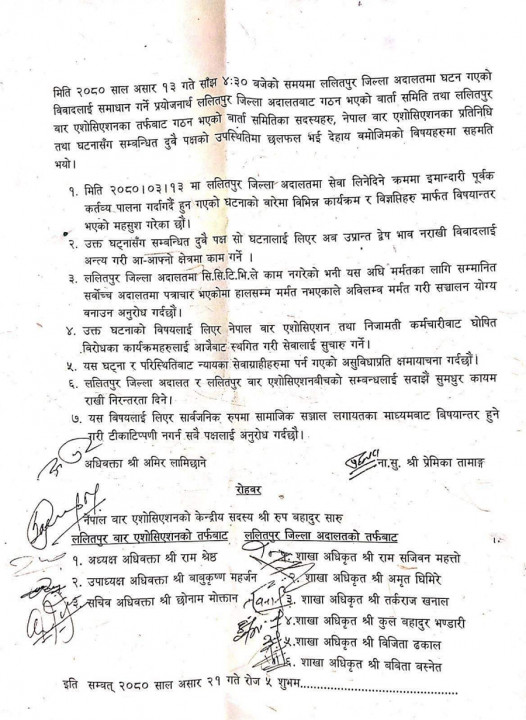 मिति २०८० साल असार १३ गते साँझ ४:३० बजेको समयमा ललितपुर जिल्ला अदालतमा घटन गएको
विवादलाई समाधान गर्ने प्रयोजनार्थ ललितपुर जिल्ला अदालतबाट गठन भएको बार्ता समिति तथा ललितपुर
बार एशोसिएशनका तर्फबाट गठन भएको बार्ता समितिका सदस्यहरु, नेपाल बार एशोसिएशनका प्रतिनिधि
तथा घटनासँग सम्बन्धित दुबै पक्षको उपस्थितिमा छलफल भई देहाय बमोजिमको विषयहरुमा सहमति
भयो।
१. मिति २०८०।०३।१३ मा ललितपुर जिल्ला अदालतमा सेवा लिनेदिने क्रममा इमान्दारी पूर्वक
कर्तव्य पालना गर्दागर्दै हुन गएको घटनाको बारेमा विभिन्न कार्यक्रम र विज्ञप्तिहरु मार्फत विषयान्तर
भएको महसुश गरेका छौं।
२. उक्त घट्नासँग सम्बन्धित दुबै पक्ष सो घटनालाई लिएर अब उप्रान्त द्वेष भाव नराखी विवादलाई
अन्त्य गरी आ-आफ्नो क्षेत्रमा काम गर्ने ।
३. ललितपुर जिल्ला अदालतमा सि.सि.टि.भि.ले काम नगरेको भनी यस अघि मर्मतका लागि सम्मानित
सर्वोच्च अदालतमा पत्राचार भएकोमा हालसम्म मर्मत नभएकाले अविलम्ब मर्मत गरी सञ्चालन योग्य
बनाउन अनुरोध गर्दछौं।
४. उक्त घटनाको विषयलाई लिएर नेपाल बार एशोसिएशन तथा निजामती कर्मचारीबाट घोषित
विरोधका कार्यक्रमहरुलाई आजैबाट स्थगित गरी सेवालाई सुचारु गर्ने।
५. यस घट्ना र परिस्थितिबाट न्यायका सेवाग्राहीहरुमा पर्न गएको असुविधाप्रति क्षमायाचना गर्दछौं।
६. ललितपुर जिल्ला अदालत र ललितपुर बार एशोसिएशनबीचको सम्बन्धलाई सदाझैं सुमधुर कायम
राखी निरन्तरता दिने।
७. यस विषयलाई लिएर सार्वजनिक रुपमा सामाजिक सञ्जाल लगायतका माध्यमबाट विषयान्तर हुने
गरी टीकाटिप्पणी नगर्न सबै पक्षलाई अनुरोध गर्दछौं।
अधिवक्ता श्री अमिर लामिछाने ना.सु. श्री प्रेमिका तामाङ्ग
रोहबर
नेपाल बार एशोसिएशनको केन्द्रीय सदस्य श्री रुप बहादुर सारु
ललितपुर बार एशोसिएशनको तर्फबाट ललितपुर जिल्ला अदालतको तर्फबाट
१. अध्यक्ष अधिवक्ता श्री राम श्रेष्ठ शाखा अधिकृत श्री राम सजिवन महत्तो
२. उपाध्यक्ष अधिवक्ता श्री बाबुकृष्ण महर्जन २. शाखा अधिकृत श्री अमृत घिमिरे
३. सचिव अधिवक्ता श्री छोनाम मोक्तान ३. शाखा अधिकृत श्री तर्कराज खनाल
४.शाखा अधिकृत श्री कुल बहादुर भण्डारी
५.शाखा अधिकृत श्री विजिता ढकाल
६. शाखा अधिकृत श्री बबिता बस्नेत
इति सम्वत् २०८० साल असार २१ गते रोज ५ शुभम..............................